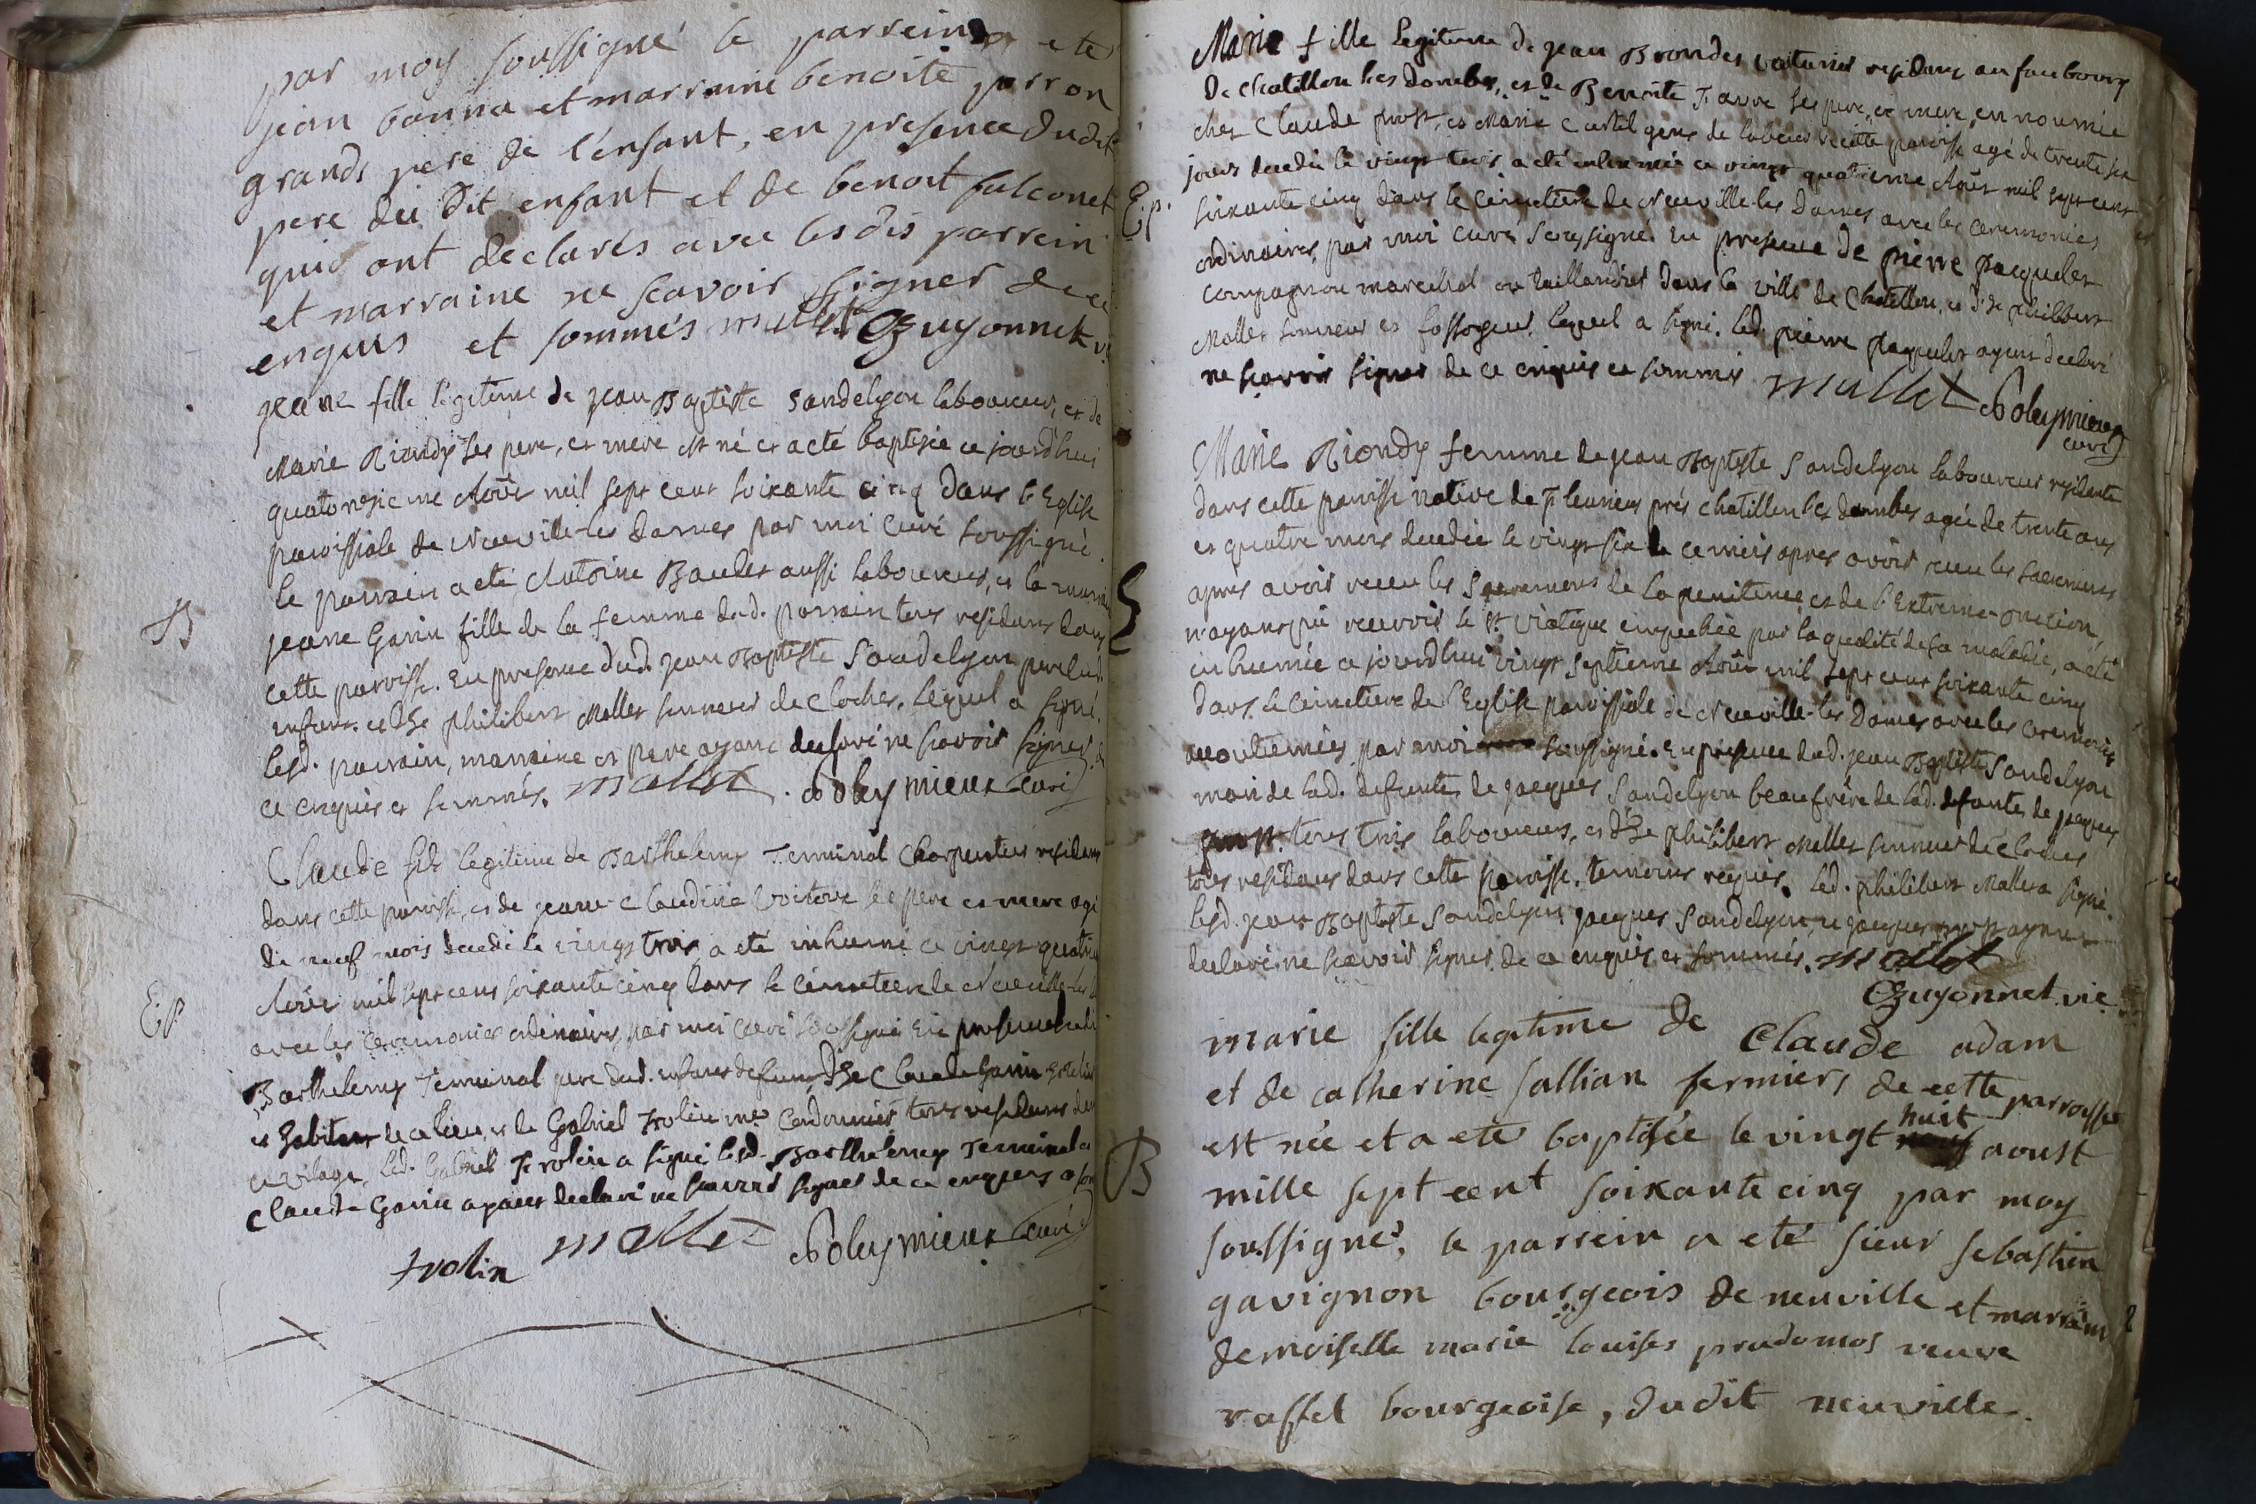 par moy soussigné le parrein a ete
jean bonna et marraine benoite perron
grands pere de l'enfant, en presence dudit
pere du dit enfant et de benoit falconet
qui ont declarés avec lesdis parrein
et marraine ne scavoir signer de ce
enquis et sommés mallet Guyonnet vi
jeane fille legitime de jean Baptiste Sandelyon laboureur, et de
Marie Riondy ses pere, et mere est né et a eté baptisée ce jourd'huy
quatorzieme Août mil sept cent soixante cinq dans l'Eglise
paroissiale de Neuville-les Dames par moi curé soussigné.
B
le parrain a eté Antoine Baudet aussi laboureur, et la marrai
jeane Garin fille de la femme dud. parrain tous residans dans
cette paroisse. En presence dud. jean Baptiste Sandelyon pere dud.
enfant. et de philibert Mallet sonneur de cloches. lequel a signé.
lesd. parrain, marraine et pere ayant declaré ne scavoir signer de
ce enquis et sommés. mallet. Poleymieux curé
Claude fils legitime de Barthelemy Terminal Charpentier residant
dans cette paroisse, et de jeane-Claudine Voiture ses pere et mere agé
de neuf mois decedé le vingt trois, a eté inhumé ce vingt quatrie
EP
Août mil sept cent soixante cinq dans le cimetiere de Neuville-les
avec les ceremonies ordinaires, par moi curé soussigné En presence de
Barthelemy Terminal pere dud. enfant defunt de Claude Garin
et habitant de ce lieu, et de Gabriel Trolin me Cordonnier tous residans
ce vilage, led. Gabriel Trolin a signé lesd. Barthelemy Terminal et
Claude Garin ayant declaré ne scavoir signer de ce enquis et som
trolin mallet Poleymieux curé
Marie fille legitime de jean Brondes voiturier residant au faubourg
de Chatillon les Dombes, et de Benoite Favre ses pere, et mere, en nourrice
chez Claude prost, et Marie Curtel gens de labeur de cette paroisse agé de trente six
jours decedée le vingt trois a eté inhumée ce vingt quatrieme Août mil sept cent
E.p.
soixante cinq dans le cimetiere de Neuville-les Dames avec les ceremonies
ordinaires, par moi curé soussigné. En presence de pierre pacquelet
compagnon marechal ou taillandier dans la ville de Chatillon, et de philibert
Mallet sonneur et fossoyeur, lequel a signé. led. pierre paquelet ayant declaré
ne scavoir signer de ce enquis et sommés mallet Poleymieux
curé
Marie Riondy femme de jean Baptiste Sandelyon laboureur residante
dans cette paroisse native de fleurieux prés chatillon les dombes agée de trente ans
et quatre mois decedée le vingt six de ce mois apres avoir receu les sacremens
E
apres avoir receu les Sacremens de la penitence, et de l'Extreme-onction,
n'ayant pû recevoir le st Viatique empechée par la qualité de sa maladie, a eté
inhumée ce jourd'huy vingt septieme Août mil sept cent soixante cinq
dans le cimetiere de l'Eglise paroissiale de Neuville-les Dames avec les ceremonies
accoutumées, par moi soussigné. En presence dud. jean Baptiste Sandelyon
mari de lad. defunte, de jacques Sandelyon beau frère de lad. defunte de jacques
prost. tous trois laboureurs, et de philibert Mallet sonneur de cloches
tous residans dans cette paroisse, temoins requis. led. philibert Mallet a signé.
lesd. jean Baptiste Sandelyon jacques Sandelyon, et jacques prost ayant
declaré ne scavoir signer de ce enquis et sommés. mallet
Guyonnet vic
marie fille legitime de Claude adam
et de catherine sallian fermiers de cette parroisse
est née et a eté baptisée le vingt huit aoust
B
mille sept cent soixante cinq par moy
soussigné, le parrein a eté sieur sebastien
gavignon bourgeois de neuville et marraine
demoiselle marie louises prudomos veuve
raffet bourgeoise, dudit neuville.